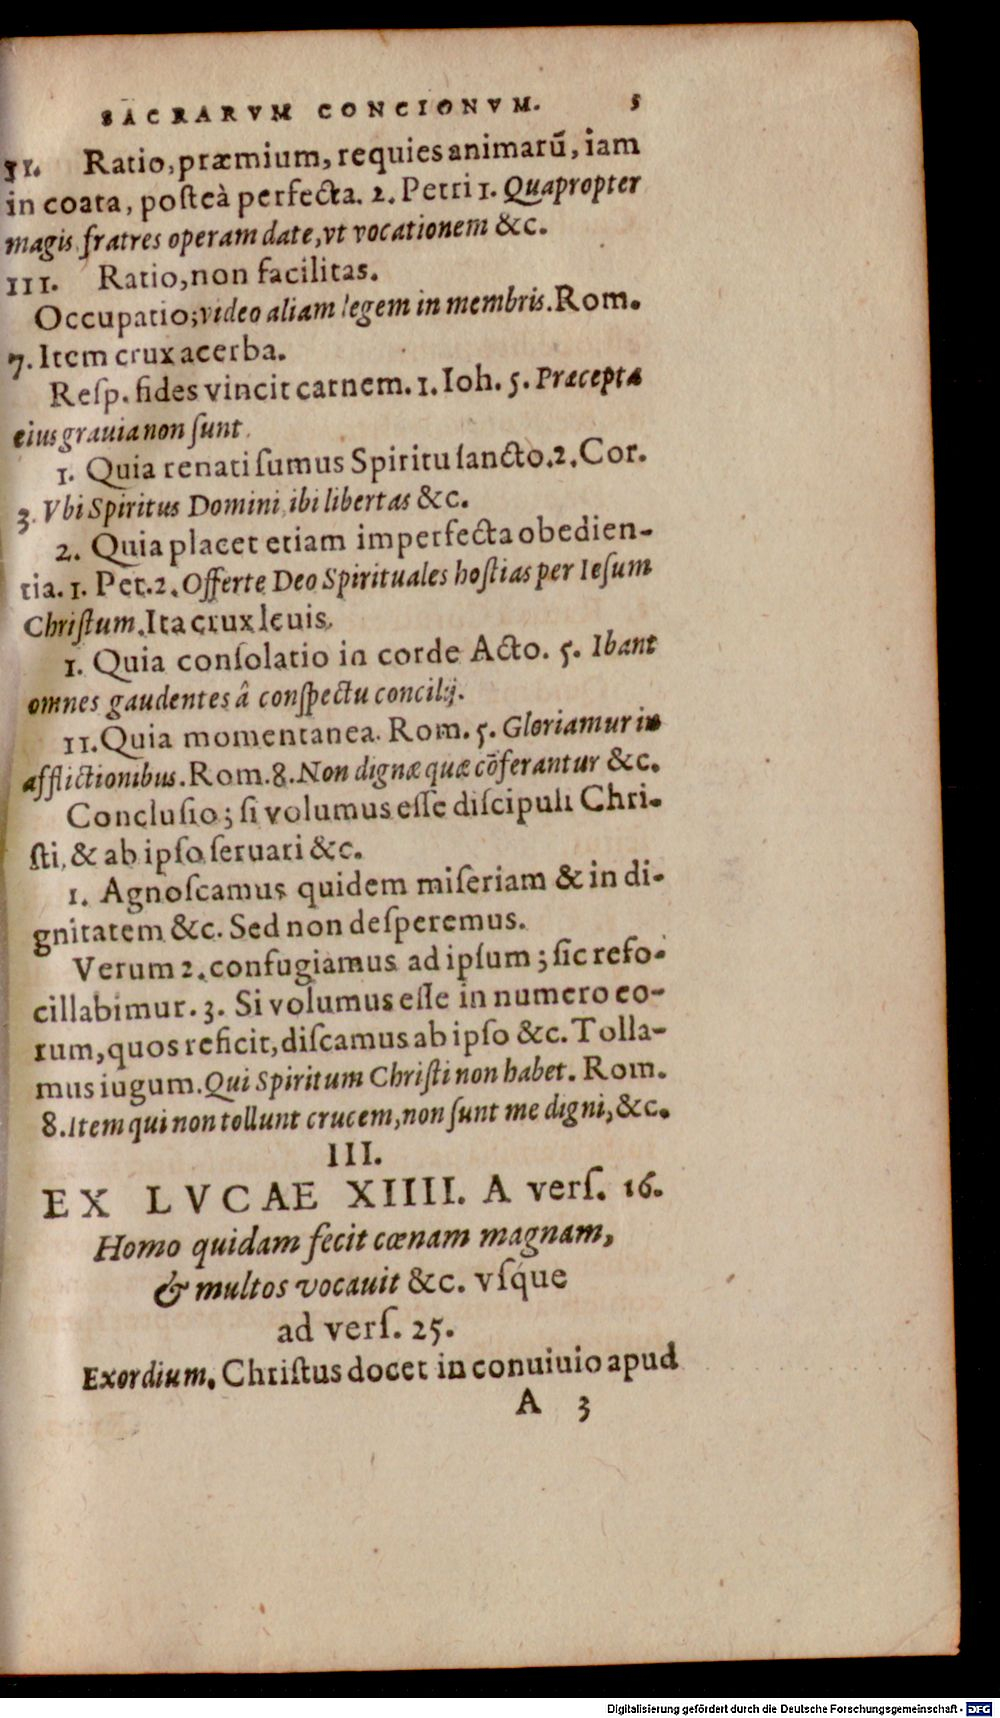 SACRARVM CONCIONVM. 5
II. Ratio, præmium, requies animarū, iam
in coata, posteà perfecta. 2. Petri 1. Quapropter
magis fratres operam date, vt vocationem &c.
III. Ratio, non facilitas.
Occupatio; video aliam legem in membris. Rom.
7. Item crux acerba.
Resp. fides vincit carnem. 1. Ioh. 5. Præcepta
eius grauia non sunt.
1. Quia renati sumus Spiritu sancto. 2. Cor.
3. Vbi Spiritus Domini, ibi libertas &c.
2. Quia placet etiam imperfecta obedien-
tia. 1. Pet. 2. Offerte Deo Spirituales hostias per Iesum
Christum. Ita crux leuis.
1. Quia consolatio in corde Acto. 5. Ibant
omnes gaudentes â conspectu concilij.
II. Quia momentanea. Rom. 5. Gloriamur in
afflictionibus. Rom. 8. Non dignæ quæ cōferantur &c.
Conclusio; si volumus esse discipuli Chri-
sti, & ab ipso seruari &c.
1. Agnoscamus quidem miseriam & in di-
gnitatem &c. Sed non desperemus.
Verum 2. confugiamus ad ipsum; sic refo-
cillabimur. 3. Si volumus esse in numero eo-
rum, quos reficit, discamus ab ipso &c. Tolla-
mus iugum. Qui Spiritum Christi non habet. Rom.
8. Item qui non tollunt crucem, non sunt me digni, &c.
III.
EX LVCAE XIIII. A vers. 16.
Homo quidam fecit cœnam magnam,
& multos vocauit &c. vsque
ad vers. 25.
Exordium. Christus docet in conuiuio apud
A 3
Digitalisierung gefördert durch die Deutsche Forschungsgemeinschaft - DFG